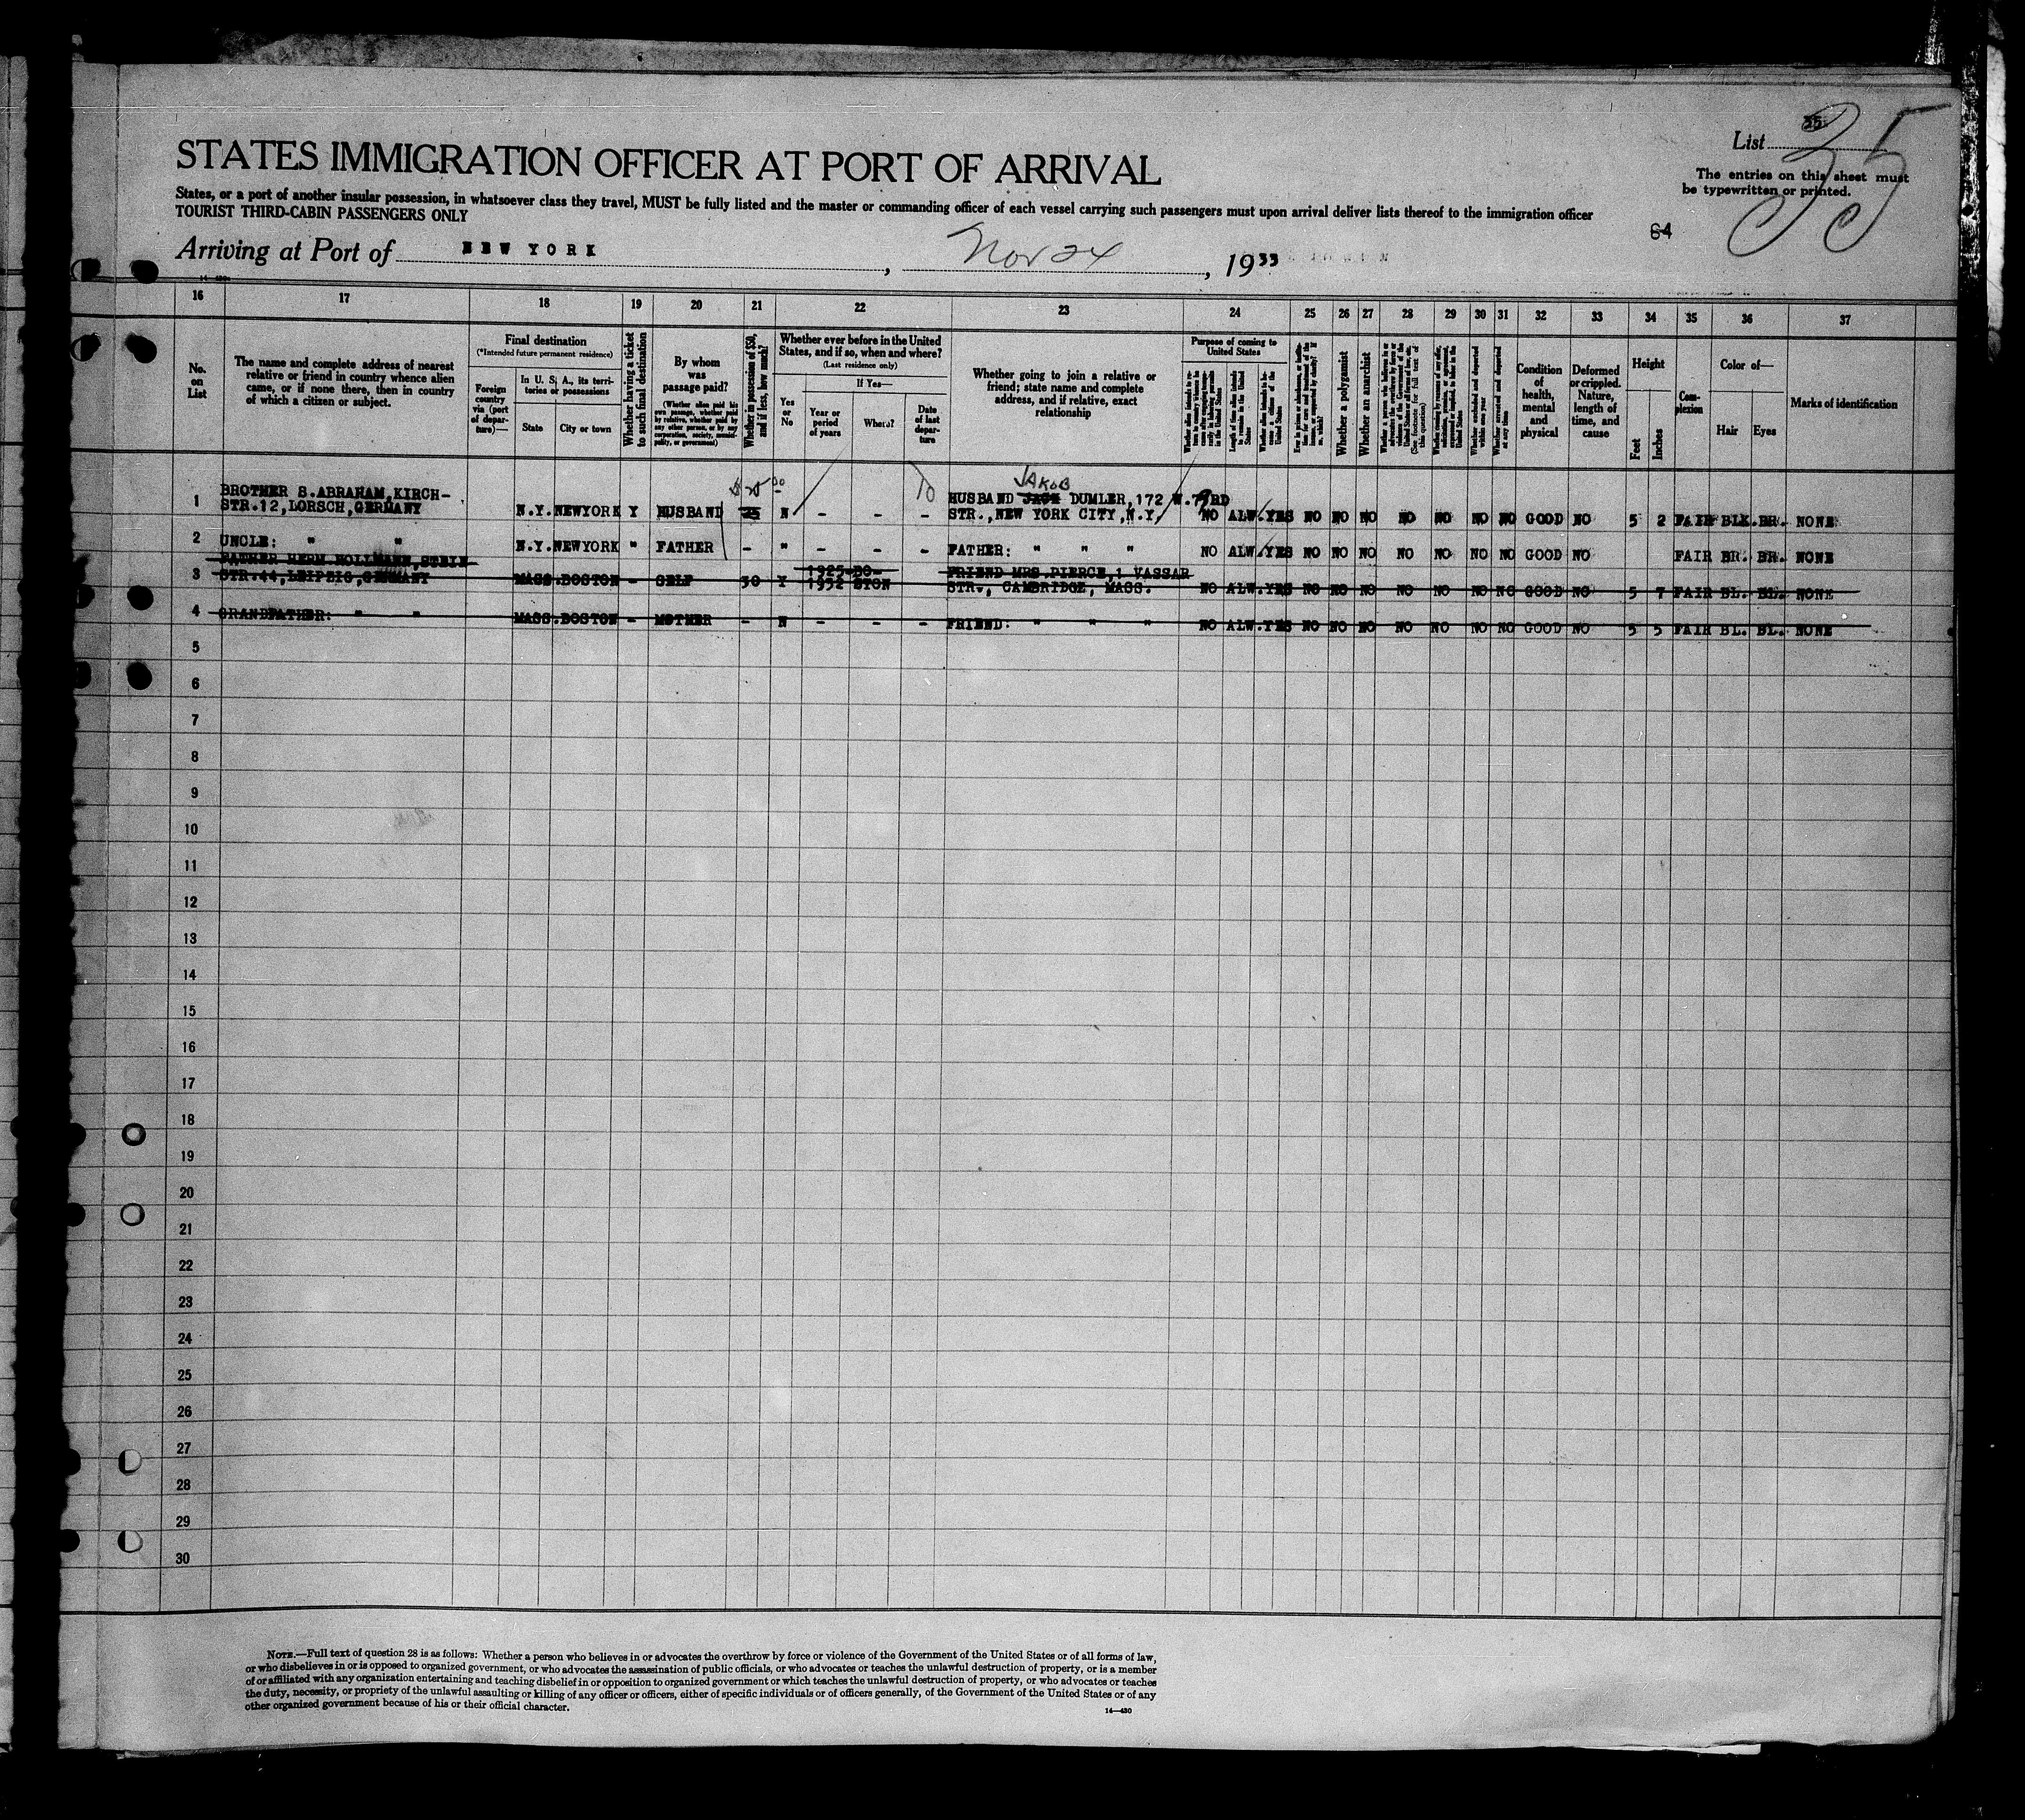 List 35
35
STATES IMMIGRATION OFFICER AT PORT OF ARRIVAL
The entries on this sheet must
be typewritten or printed.
States, or a port of another insular possession, in whatsoever class they travel, MUST be fully listed and the master or commanding officer of each vessel carrying such passengers must upon arrival deliver lists thereof to the immigration officer
TOURIST THIRD-CABIN PASSENGERS ONLY
64
Arriving at Port of NEW YORK, Nov 24, 1933
16 17 18 19 20 21 22 23 24 25 26 27 28 29 30 31 32 33 34 35 36 37
No.
on
List
The name and complete address of nearest
relative or friend in country whence alien
came, or if none there, then in country
of which a citizen or subject.
Final destination
(*Intended future permanent residence)
Foreign
country
via (port
of depar-
ture)—
In U. S. A., its terri-
tories or possessions
State
City or town
Whether having a ticket
to such final destination
By whom
was
passage paid?
(Whether alien paid his
own passage, whether paid
by relative, whether paid by
any other person, or by any
corporation, society, munici-
pality, or government)
Whether in possession of $50,
and if less, how much?
Whether ever before in the United
States, and if so, when and where?
(Last residence only)
Yes
or
No
If Yes—
Year or
period
of years
Where?
Date
of last
depar-
ture
Whether going to join a relative or
friend; state name and complete
address, and if relative, exact
relationship
Purpose of coming to
United States
Whether a polygamist
Whether an anarchist
Condition
of
health,
mental
and
physical
Deformed
or crippled.
Nature,
length of
time, and
cause
Height
Feet
Inches
Com-
plexion
Color of—
Hair
Eyes
Marks of identification
JAKOB
1 BROTHER S.ABRAHAM,KIRCH-
STR.12,LORSCH,GERMANY N.Y. NEWYORK Y HUSBAND 25 N - - - HUSBAND JACK DUMLER,172 W.79RD
STR.,NEW YORK CITY,N.Y. NO ALW. YES NO NO NO NO NO NO NO GOOD NO 5 2 FAIR BLK. BR. NONE
2 UNCLE: " " N.Y. NEWYORK " FATHER - " - - - FATHER: " " " NO ALW. YES NO NO NO NO NO NO NO GOOD NO FAIR BR. BR. NONE
3 FATHER HERM HOLLMANN,STEIN
STR.44,LEIPZIG,GERMANY MASS. BOSTON - SELF 30 Y 1925- BO-
1932 STON FRIEND MRS PIERCE,1 VASSAR
STR., CAMBRIDGE, MASS. NO ALW. YES NO NO NO NO NO NO NO GOOD NO 5 7 FAIR BL. BL. NONE
4 GRANDFATHER: " " MASS. BOSTON - MOTHER - N - - - FRIEND: " " " NO ALW. YES NO NO NO NO NO NO NO GOOD NO 5 5 FAIR BL. BL. NONE
5
6
7
8
9
10
11
12
13
14
15
16
17
18
19
20
21
22
23
24
25
26
27
28
29
30
NOTE.—Full text of question 28 is as follows: Whether a person who believes in or advocates the overthrow by force or violence of the Government of the United States or of all forms of law,
or who disbelieves in or is opposed to organized government, or who advocates the assassination of public officials, or who advocates or teaches the unlawful destruction of property, or is a member
of or affiliated with any organization entertaining and teaching disbelief in or opposition to organized government or which teaches the unlawful destruction of property, or who advocates or teaches
the duty, necessity, or propriety of the unlawful assaulting or killing of any officer or officers, either of specific individuals or of officers generally, of the Government of the United States or of any
other organized government because of his or their official character.
14—430